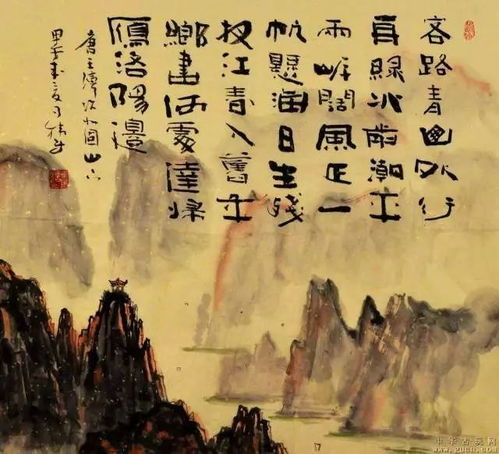 客路青山外行
舟綠水前潮平
兩岸闊風正一
帆懸海日生殘
夜江春入舊年
鄉書何處達歸
鴈洛陽邊
唐王灣次北固山下
甲午
中华古玩网
www.gucn.com